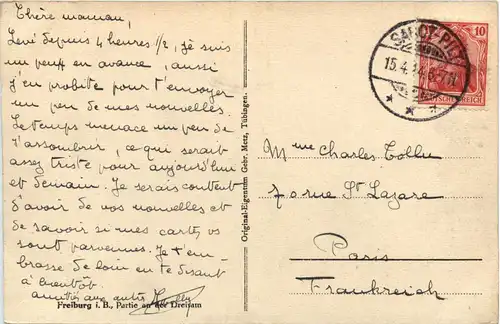 Chère maman,
Levé depuis 4 heures 1/2, je suis
un peu en avance, aussi
j'en profite pour t'envoyer
un peu de mes nouvelles.
Le temps menace un peu de
s'assombrir, ce qui serait
assez triste pour aujourd'hui
et demain. Je serais content
d'avoir de vos nouvelles et
de savoir si mes cartes vs
sont parvenues. Je t'em-
brasse de loin en te disant
à bientôt.
amitiés aux
Freiburg i. B., Partie an der Dreisam
Original-Eigentum Gebr. Metz, Tübingen.
15.4.
10
DEUTSCHES REICH
Mme Charles
70 rue St Lazare
Paris
Frankreich